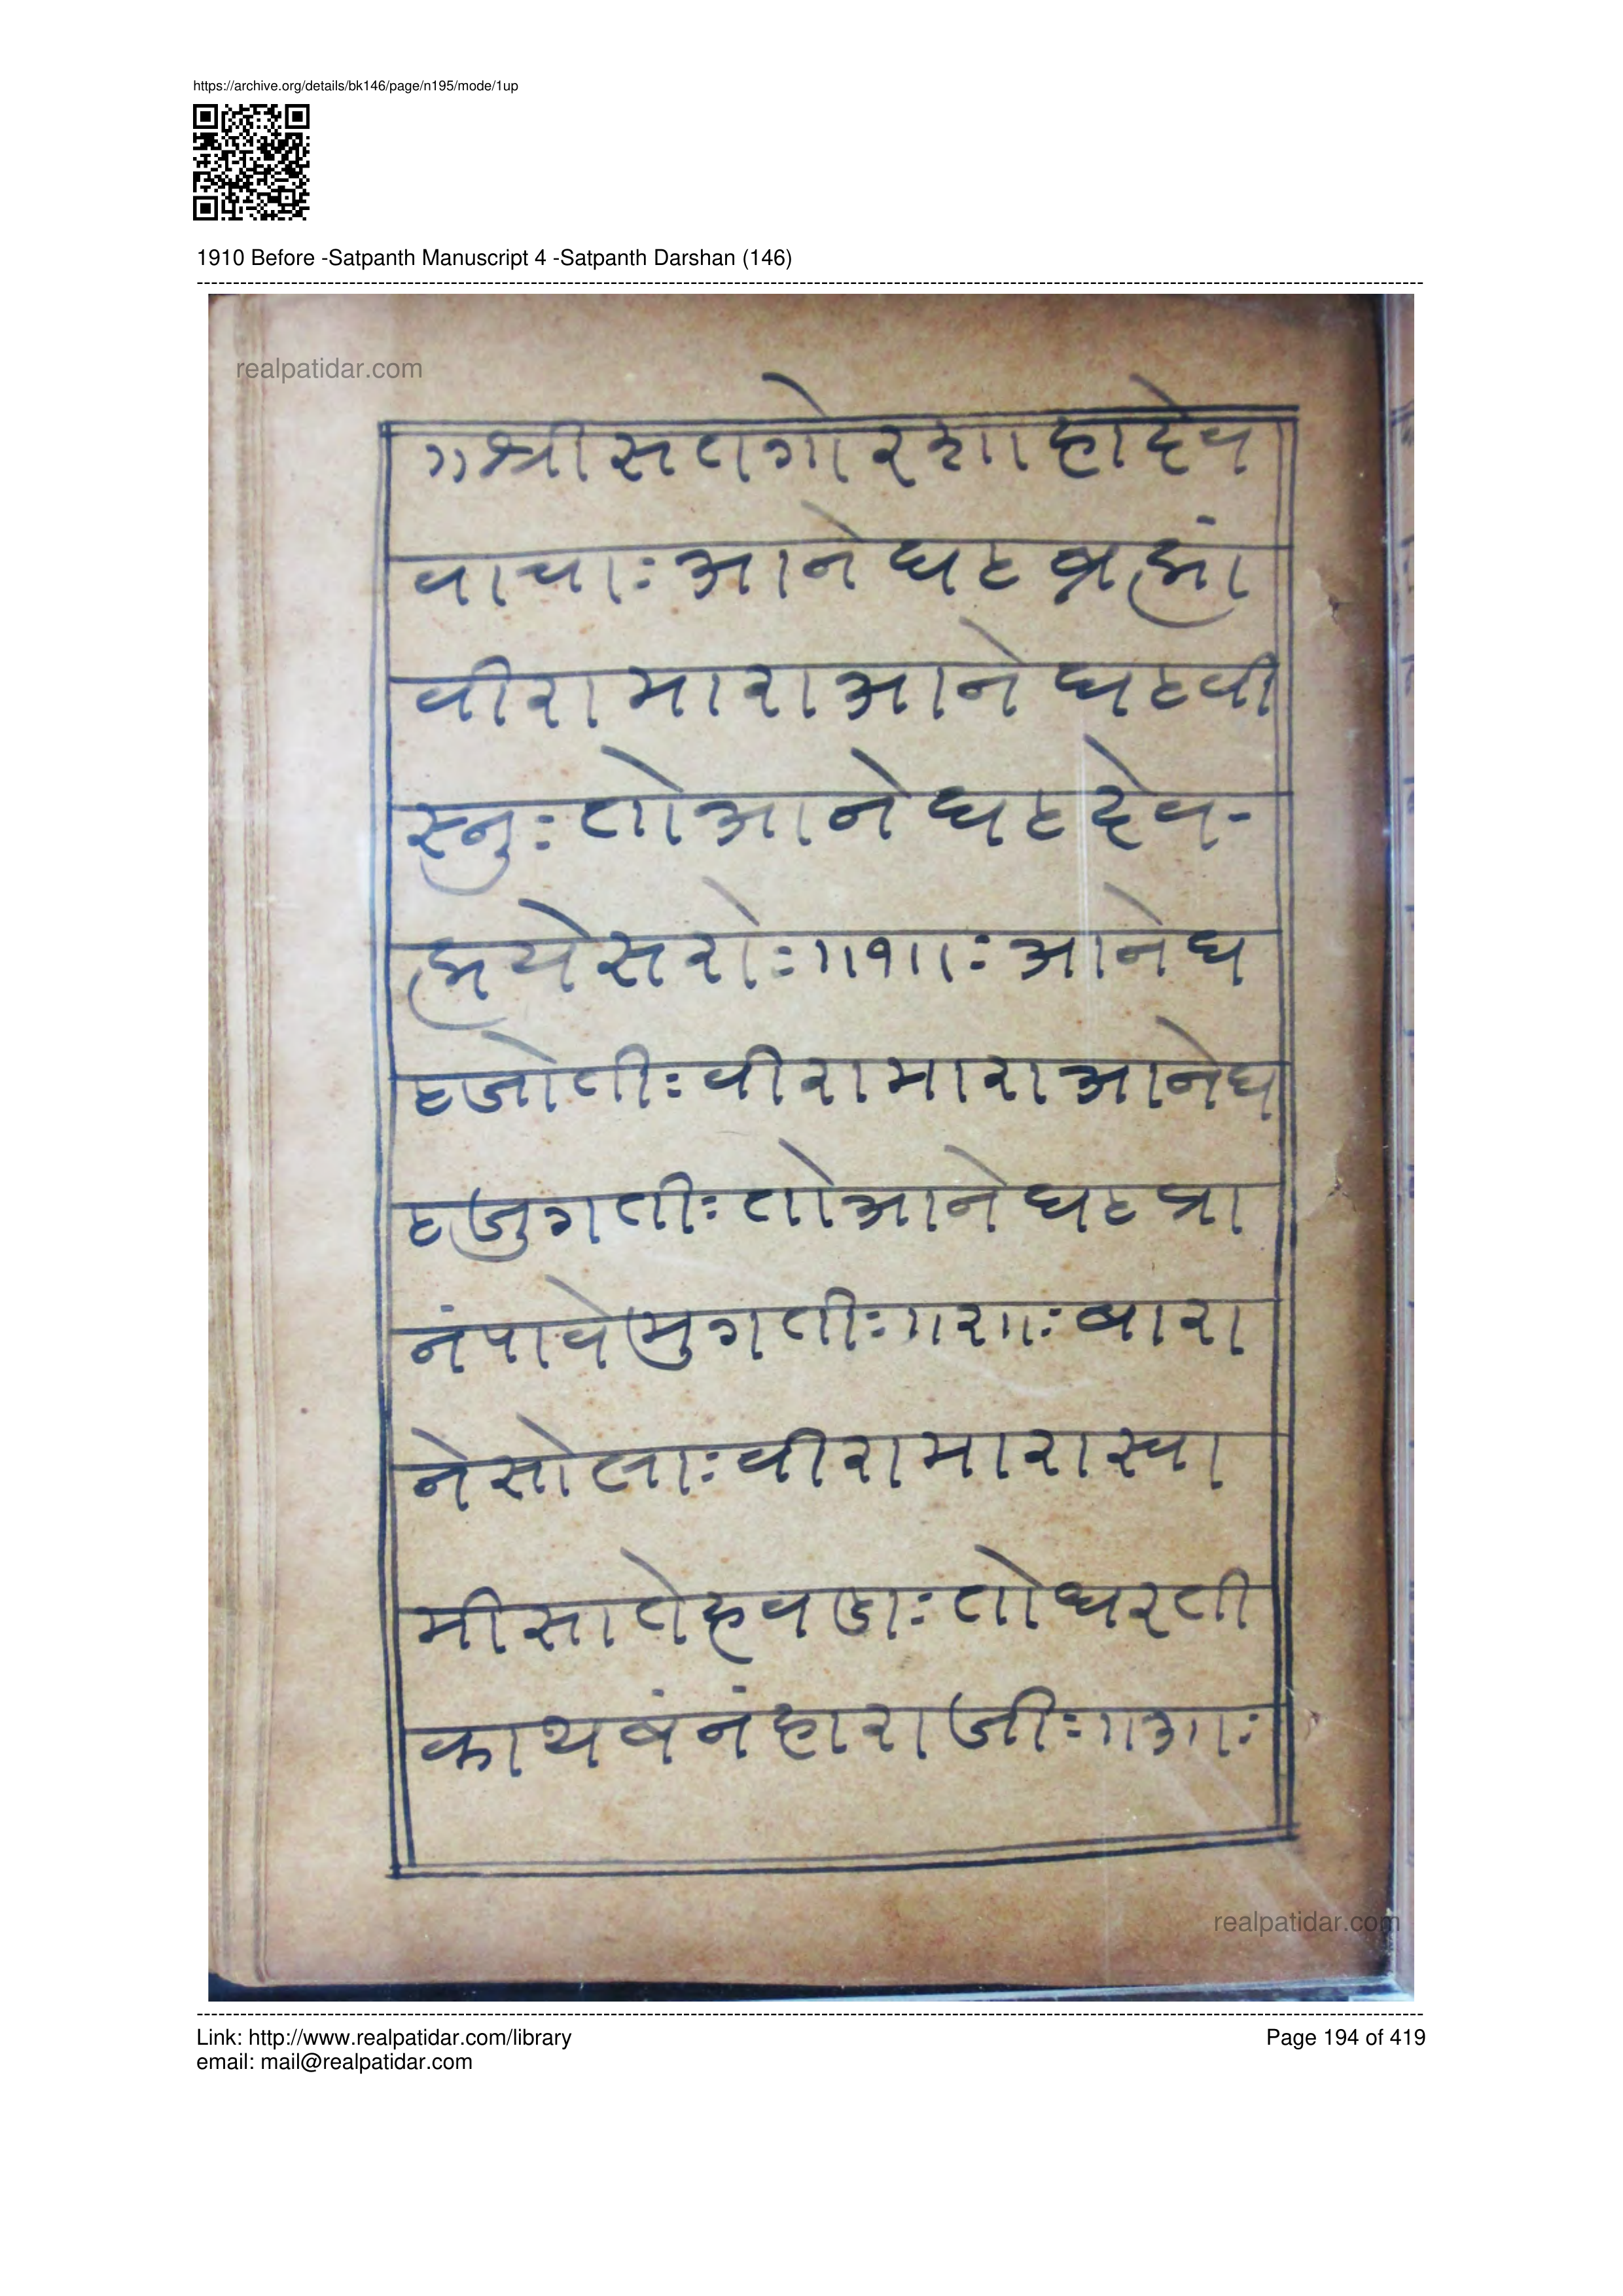 https://archive.org/details/bk146/page/n195/mode/1up
1910 Before -Satpanth Manuscript 4 -Satpanth Darshan (146)
realpatidar.com
॥श्रीसतगोरशाहादेव
वाचाः आनेघट ब्रह्मां
वीरामारा आनेघटवी
स्नुः तोआनेघटदेव-
मयेसरोः॥१॥ः आनेघ
टजोतीः वीरामारा आनेघ
टजुगतीः तोआनेघटप्रा
नंपावेमुगतीः॥२॥ः बारा
नेसोलाः वीरामारास्वा
मीसातेहवडाः तोधरती
काथबंनंहाराजीः॥३॥ः
realpatidar.com
Link: http://www.realpatidar.com/library
Page 194 of 419
email: mail@realpatidar.com